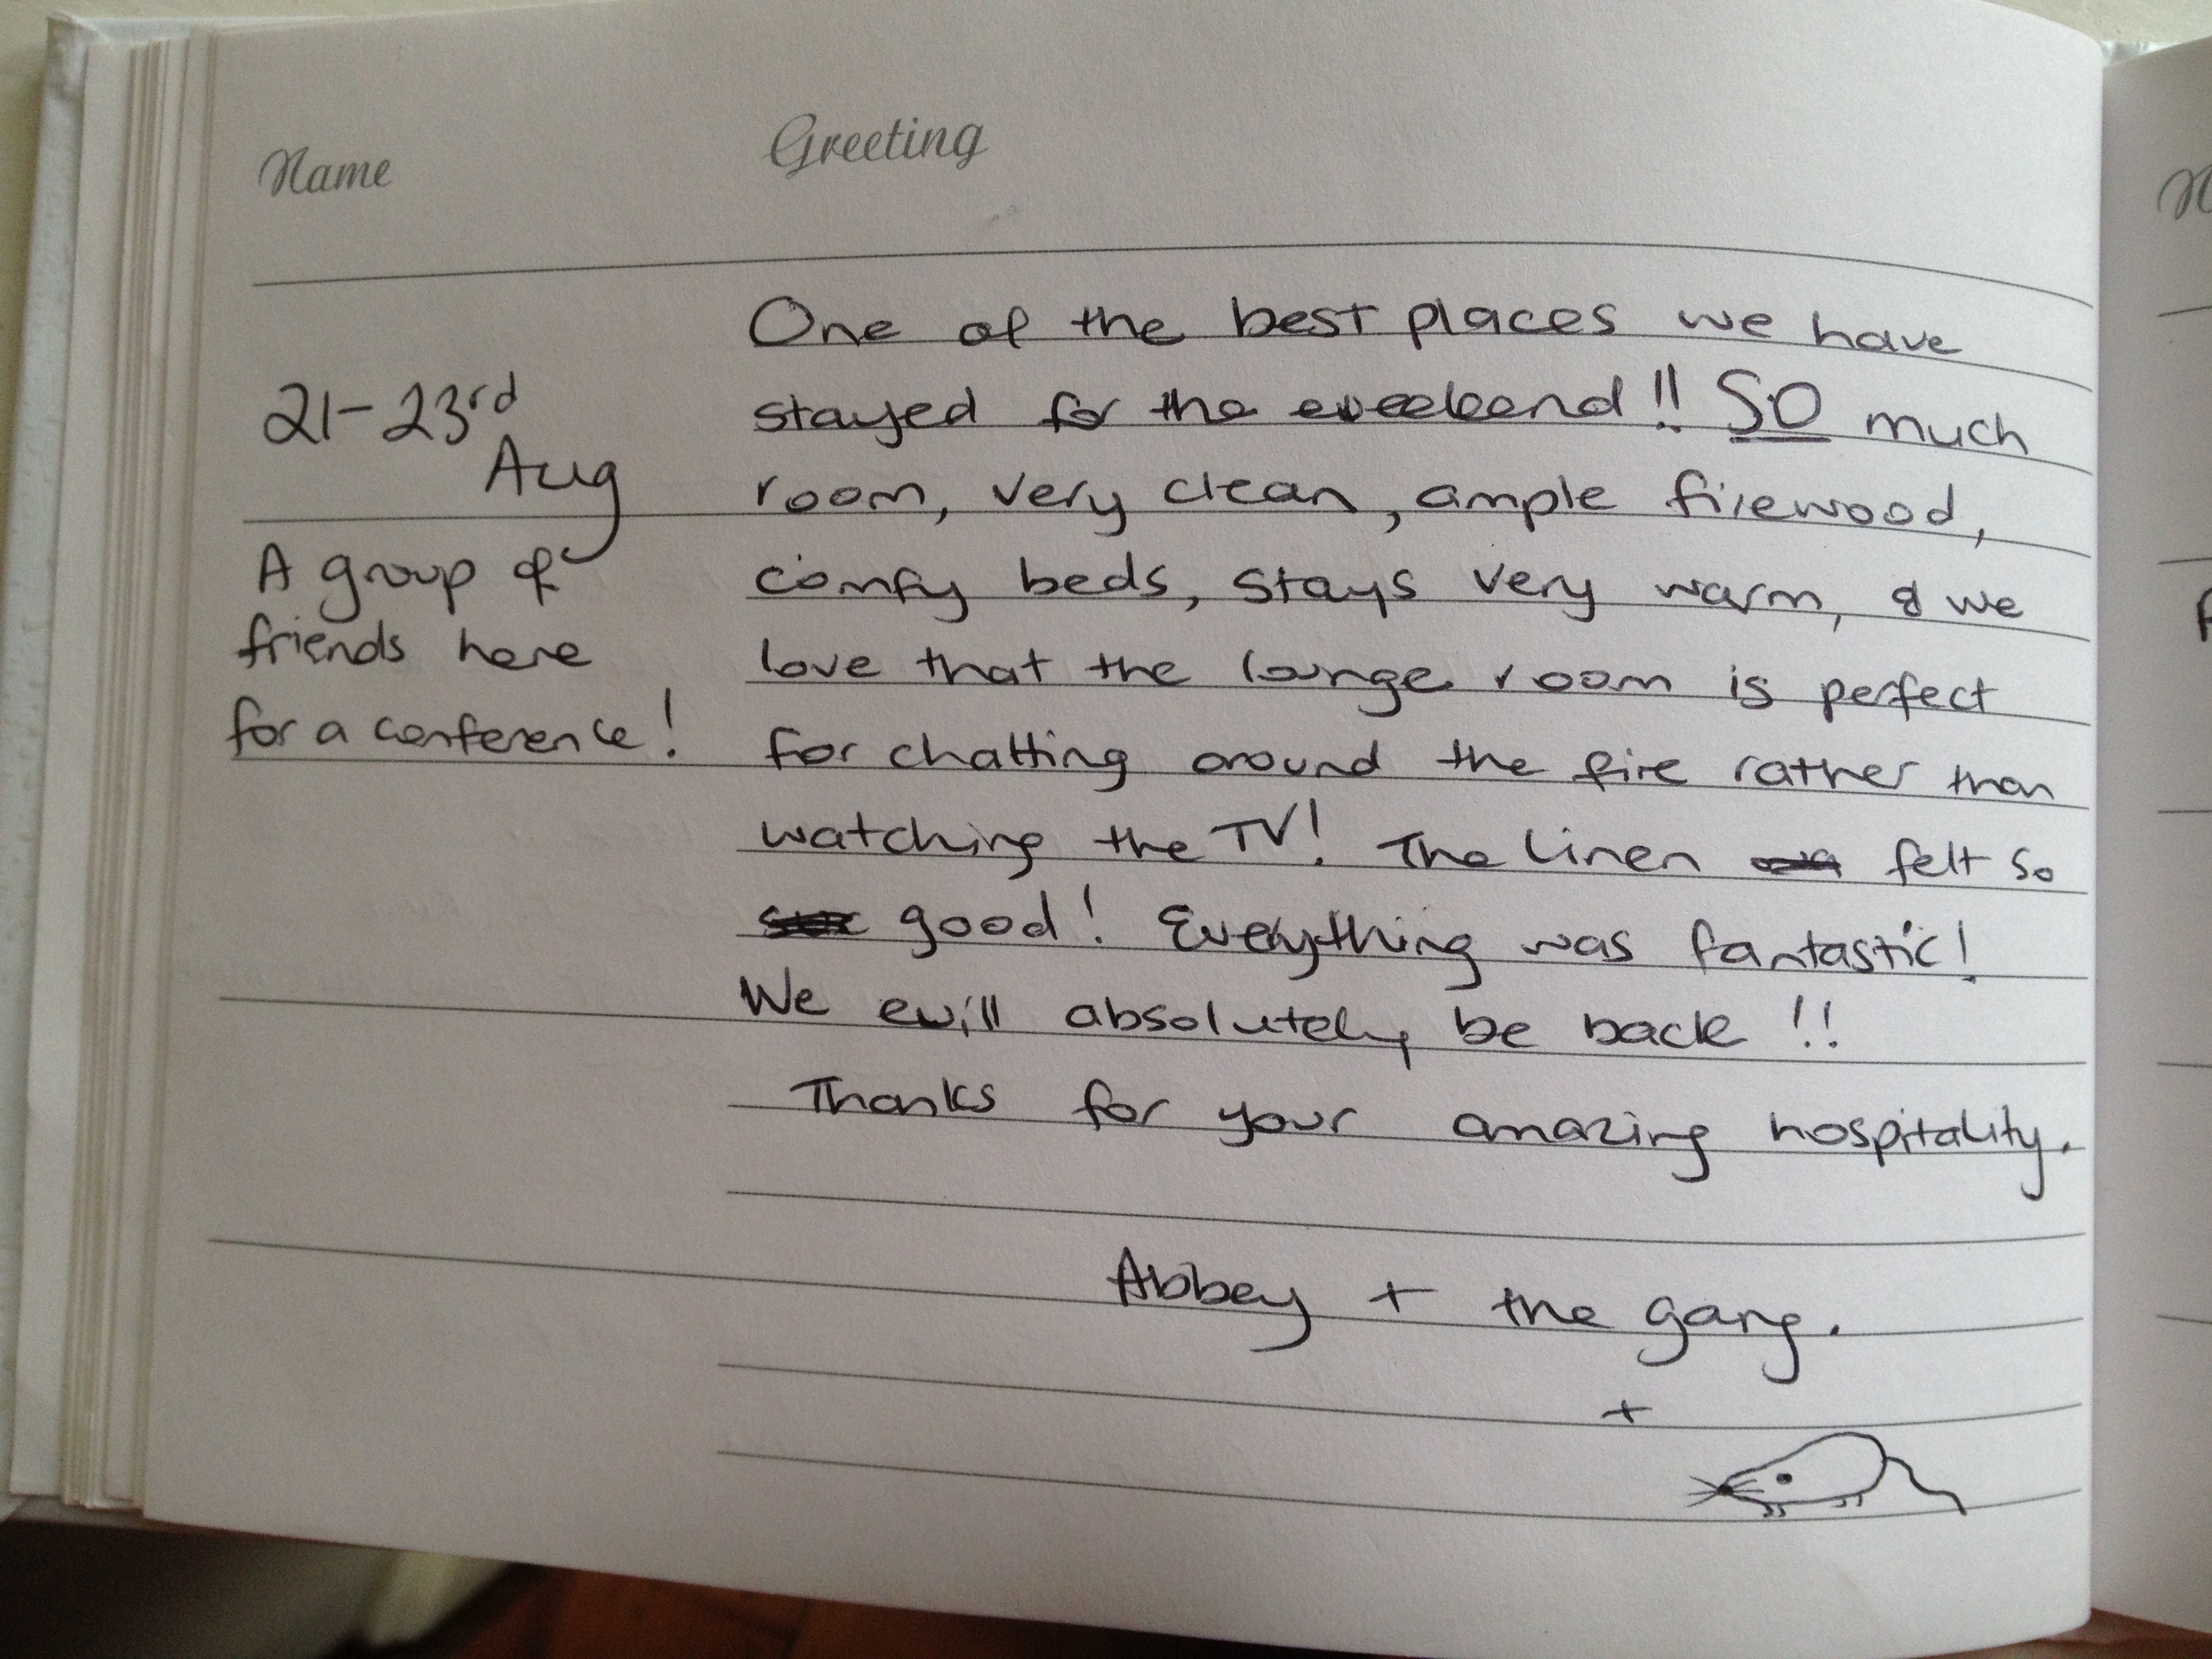 Name
Greeting
21-23rd
Aug
A group of
friends here
for a conference!
One of the best places we have
stayed for the weekend!! SO much
room, very clean, ample firewood,
comfy beds, stays very warm, & we
love that the lounge room is perfect
for chatting around the fire rather than
watching the TV! The linen felt so
good! Everything was fantastic!
We will absolutely be back!!
Thanks for your amazing hospitality.
Abbey + the gang.
+